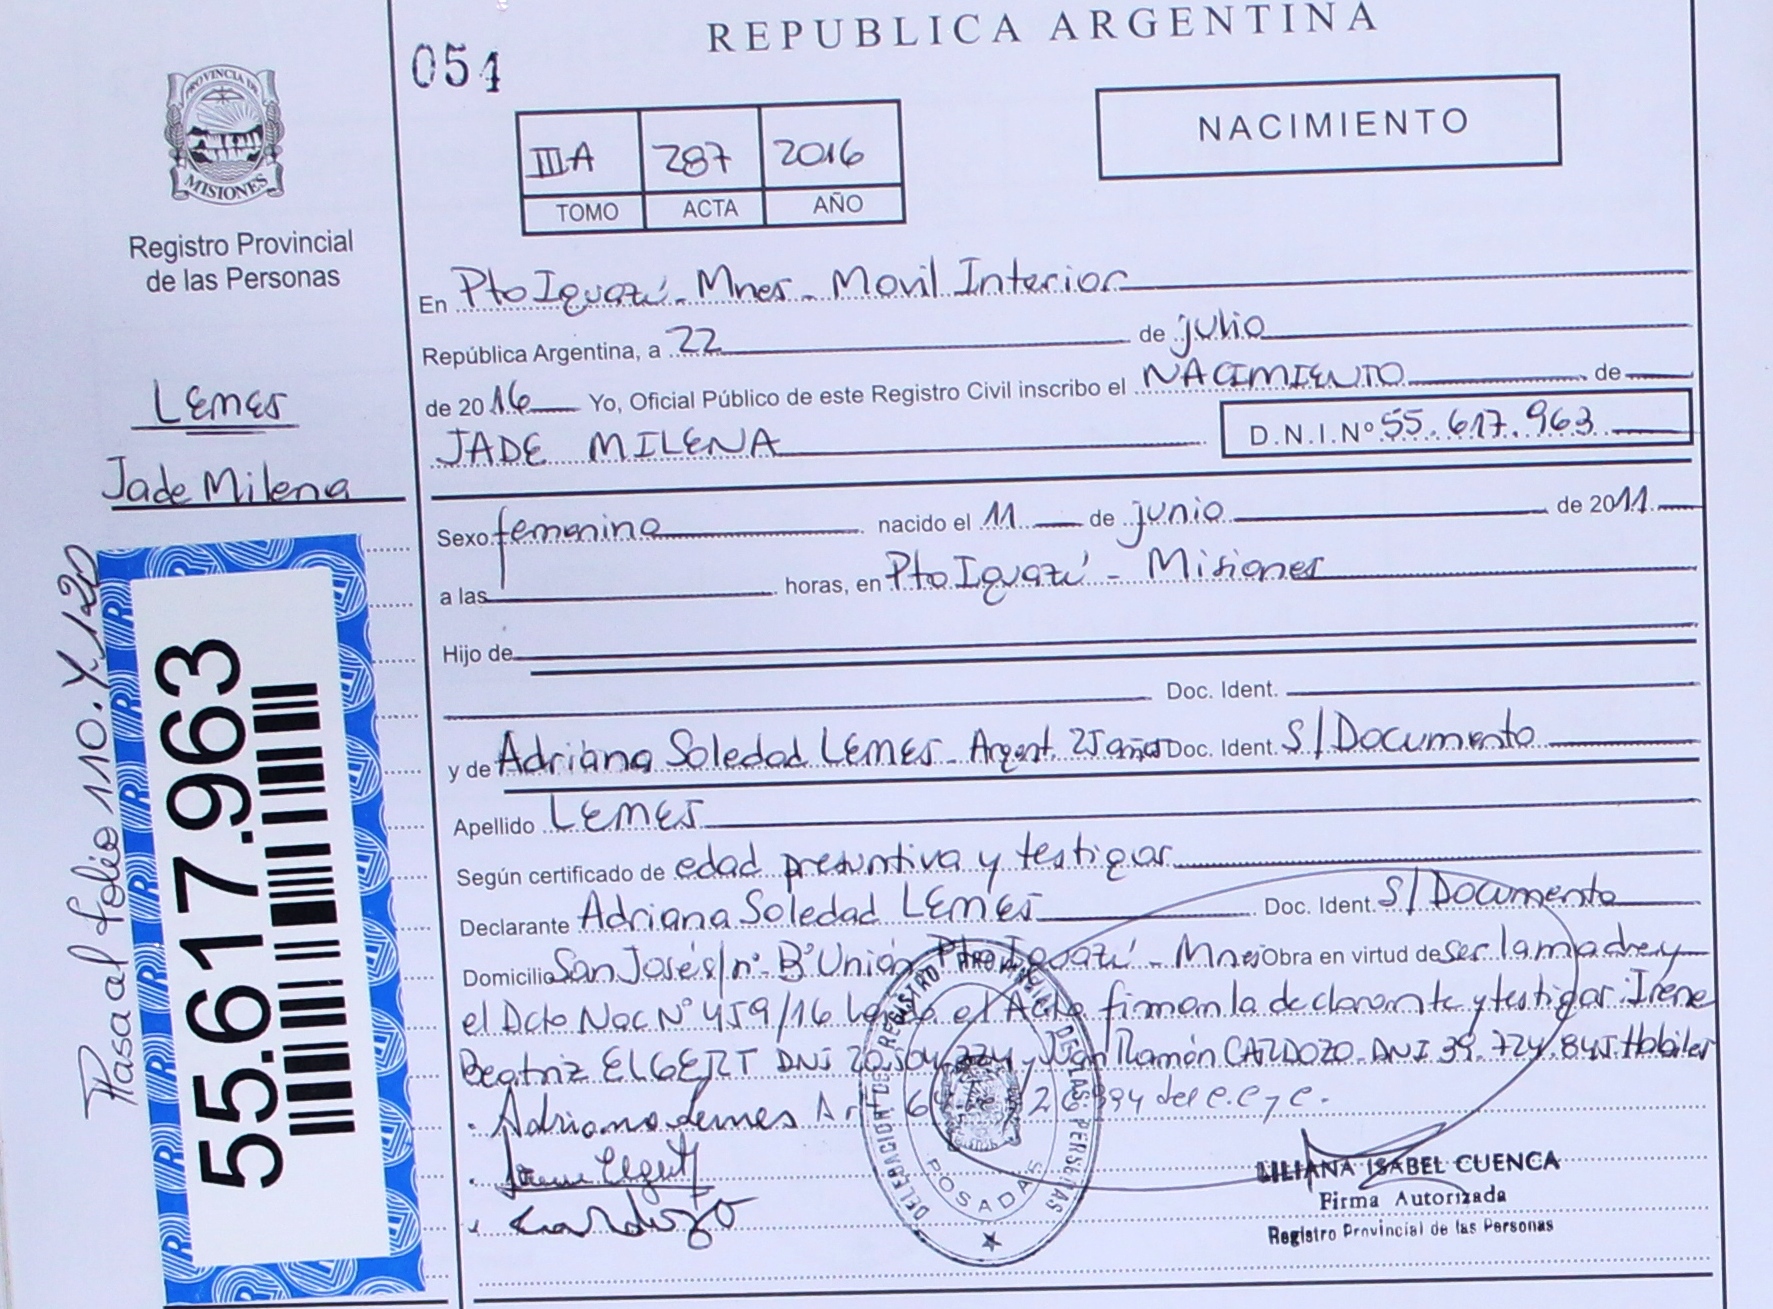 REPUBLICA ARGENTINA
054
NACIMIENTO
PROVINCIA DE
MISIONES
Registro Provincial
de las Personas
IIIA 287 2016
TOMO ACTA AÑO
En Pto Iguazú - Mnes - Movil Interior
República Argentina, a 22 de julio
de 2016 Yo, Oficial Público de este Registro Civil inscribo el NACIMIENTO de
JADE MILENA D.N.I.Nº 55.617.963
Lemes
Jade Milena
Sexo femenino nacido el 11 de junio de 2011
a las horas, en Pto Iguazú - Misiones
Hijo de
Doc. Ident.
y de Adriana Soledad LEMES - Argent. 25 años Doc. Ident. S/Documento
Apellido LEMES
Según certificado de edad presuntiva y testigos
Declarante Adriana Soledad LEMES Doc. Ident. S/Documento
Domicilio San José s/nº - Bº Unión Pto Iguazú - Mnes Obra en virtud de ser la madre y
el Dcto Nac Nº 459/16 el Acta firman la declarante y testigos: Irene
Beatriz ELGERT DNI y Juan Ramón CARDOZO DNI 39.724.845 Hábiles
Adriana Lemes Art 26994 del C.C y C.
Cardozo
DELEGACION DEL REGISTRO PROVINCIAL DE LAS PERSONAS
POSADAS
LILIANA ISABEL CUENCA
Firma Autorizada
Registro Provincial de las Personas
Pasa al folio 110. Y 120
55.617.963